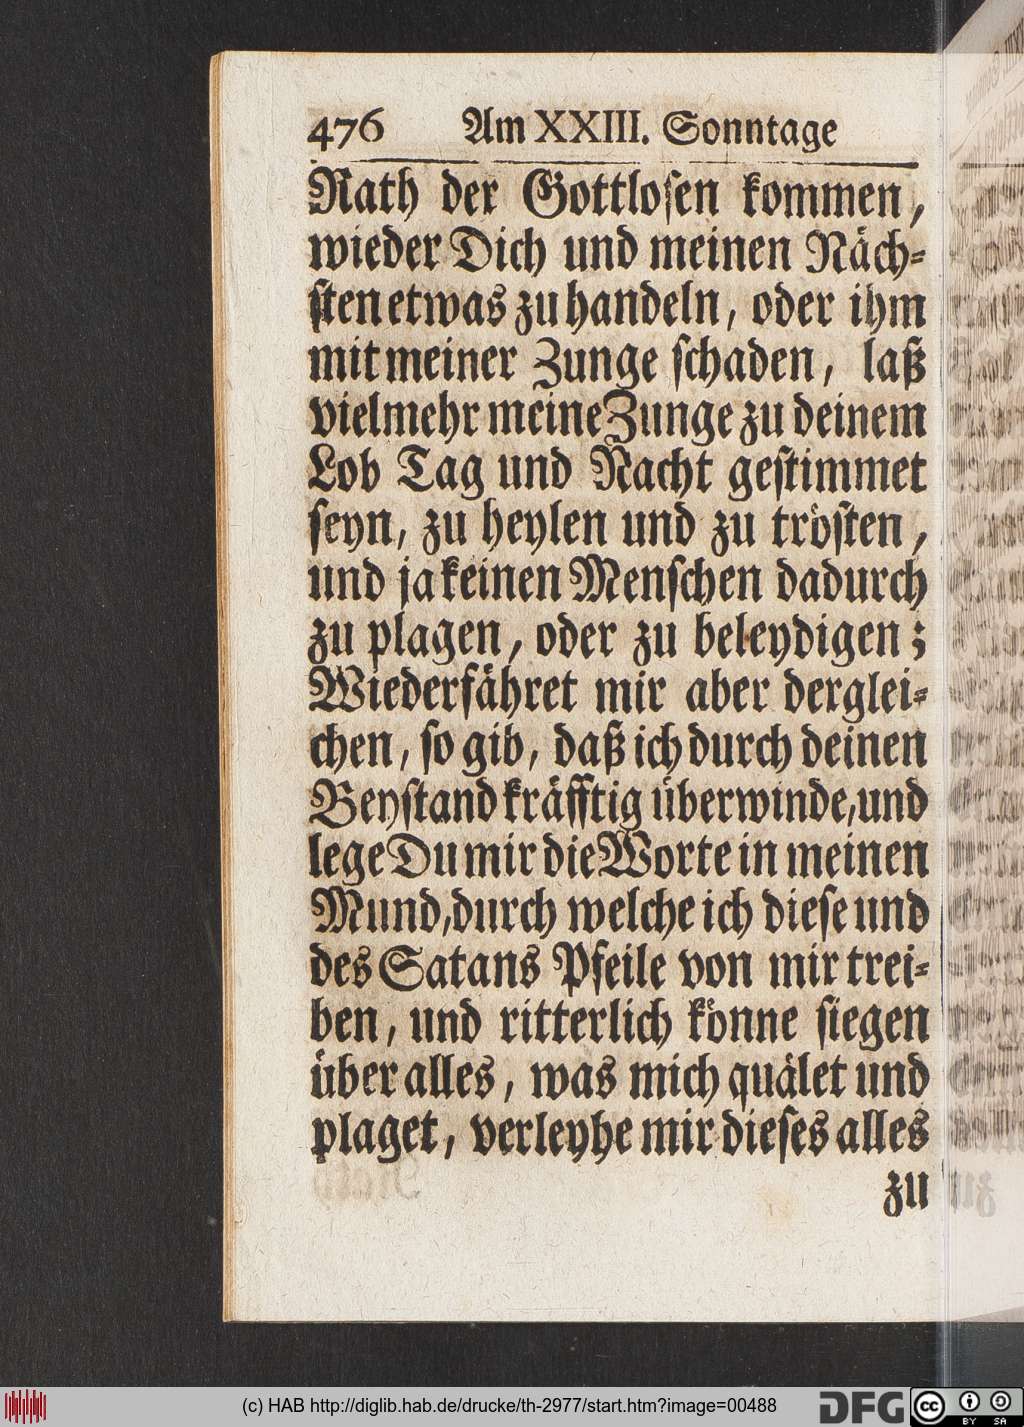 476 Am XXIII. Sonntage
Rath der Gottlosen kommen,
wieder Dich und meinen Näch-
sten etwas zu handeln, oder ihm
mit meiner Zunge schaden, laß
vielmehr meine Zunge zu deinem
Lob Tag und Nacht gestimmet
seyn, zu heylen und zu trösten,
und ja keinen Menschen dadurch
zu plagen, oder zu beleydigen;
Wiederfähret mir aber derglei-
chen, so gib, daß ich durch deinen
Beystand kräfftig überwinde, und
lege Du mir die Worte in meinen
Mund, durch welche ich diese und
des Satans Pfeile von mir trei-
ben, und ritterlich könne siegen
über alles, was mich quälet und
plaget, verleyhe mir dieses alles
zu
(c) HAB http://diglib.hab.de/drucke/th-2977/start.htm?image=00488
DFG
cc BY SA